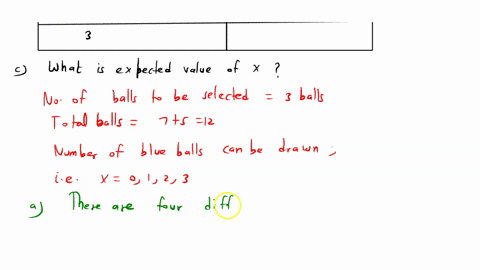 3
c) What is expected value of x ?
No. of balls to be selected = 3 balls
Total balls = 7+5 =12
Number of blue balls can be drawn ;
i.e. x = 0, 1, 2, 3
a) There are four diff